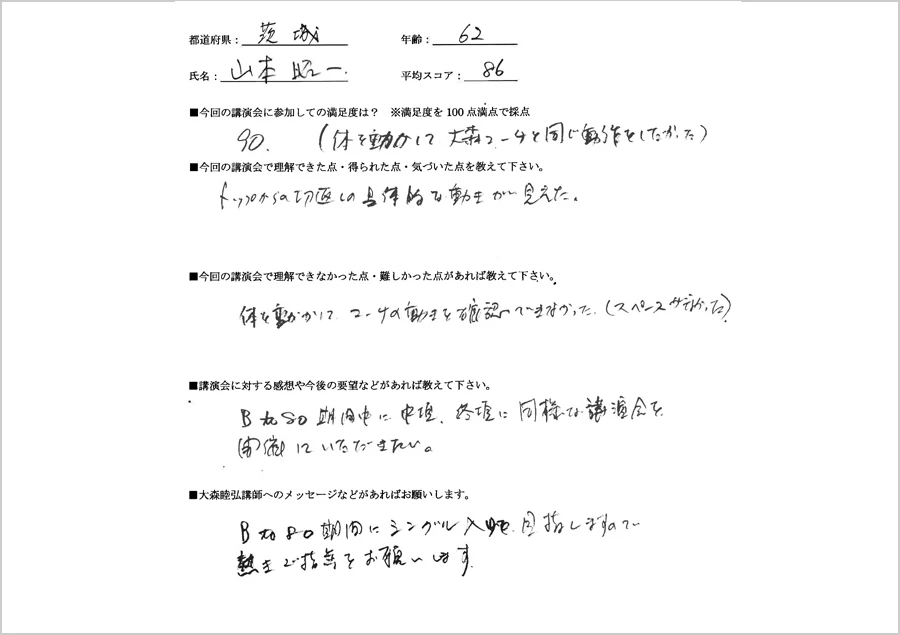 都道府県： 茨城 年齢： 62
氏名： 山本昭一 平均スコア： 86
■今回の講演会に参加しての満足度は？ ※満足度を100点満点で採点
90. (体を動かして大森コーチと同じ動作をしたかった)
■今回の講演会で理解できた点・得られた点・気づいた点を教えて下さい。
トップからの切返しの具体的な動きが見えた。
■今回の講演会で理解できなかった点・難しかった点があれば教えて下さい。
体を動かして、コーチの動きを確認できなかった。(スペースがなかった)
■講演会に対する感想や今後の要望などがあれば教えて下さい。
B to 80 期間中に中垣、終垣に同様な講演会を
開催していただきたい。
■大森睦弘講師へのメッセージなどがあればお願いします。
B to 80 期間にシングル入りを目指しますので
熱きご指導をお願いします。